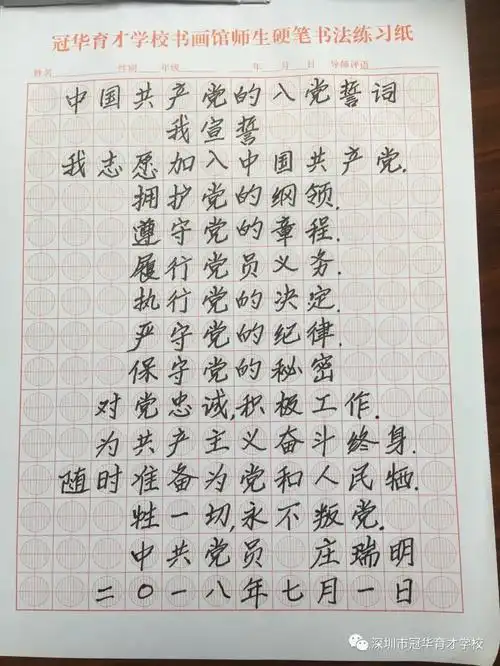 冠华育才学校书画馆师生硬笔书法练习纸
姓名 性别 年级 年 月 日 导师评语
中国共产党的入党誓词
我宣誓
我志愿加入中国共产党.
拥护党的纲领.
遵守党的章程.
履行党员义务.
执行党的决定.
严守党的纪律.
保守党的秘密
对党忠诚,积极工作.
为共产主义奋斗终身.
随时准备为党和人民牺.
牲一切,永不叛党.
中共党员 庄瑞明
二〇一八年七月一日
深圳市冠华育才学校